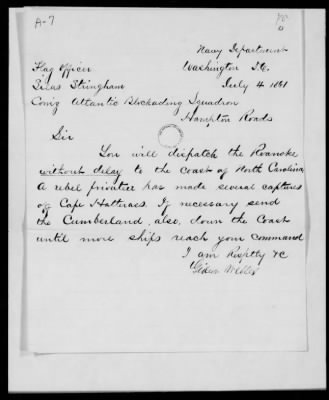 A-7
Navy Department
Flag Officer
Washington D.C.
Silas Stringham
July 4 1861
Comg Atlantic Blockading Squadron
Hampton Roads
Sir
You will dispatch the Roanoke
without delay to the coast of North Carolina
A rebel privatier has made several captures
off Cape Hatteras. If necessary send
the Cumberland, also, down the Coast
until more ships reach your command
I am Respctly &c
Gideon Welles